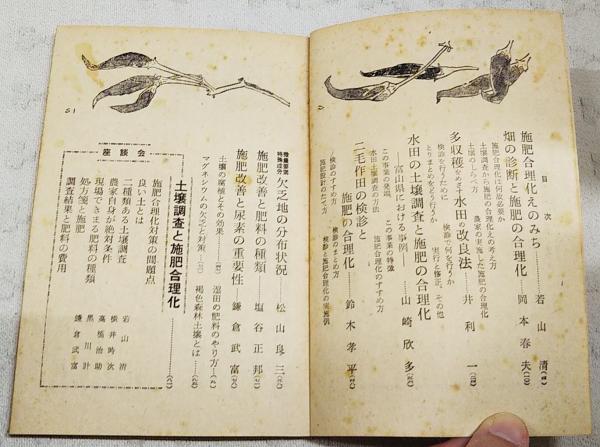 目次
施肥合理化えのみち……若山清(4)
施肥合理化は何故必要か
畑の診断と施肥の合理化……岡本春夫(10)
土壌調査から施肥の合理化えの考え方
土壌のしらべ方 農家の実施した施肥の合理化
多収穫をめざす水田の改良法……井利一
検診を行うために 検診で何を行うか
とりまとめをどう行うか 実行と修正、その他
水田の土壌調査と施肥の合理化
―富山県における事例―……山崎欣多
この事業の発端 この事業の特徴
水田土壌調査の方法 施肥合理化のすすめ方
二毛作田の検診と
施肥の合理化……鈴木孝平
検診のすすめ方 検診のまとめ方
施肥設計のたて方 検診と施肥合理化の実施例
微量要素特殊成分欠乏地の分布状況……松山良三
施肥改善と肥料の種類……塩谷正邦
施肥改善と尿素の重要性……鎌倉武富
土壌の腐植とその効果
湿田の肥料のやり方
マグネシウムの欠乏と対策
褐色森林土壌とは
土壌調査と施肥合理化
座談会
施肥合理化対策の問題点
良い土とは
二種類ある土壌調査
農家自身が絶対条件
現場できまる肥料の種類
処方箋と施肥
調査結果と肥料の費用
若山清
横井時次
高橋治助
黒川計
鎌倉武富